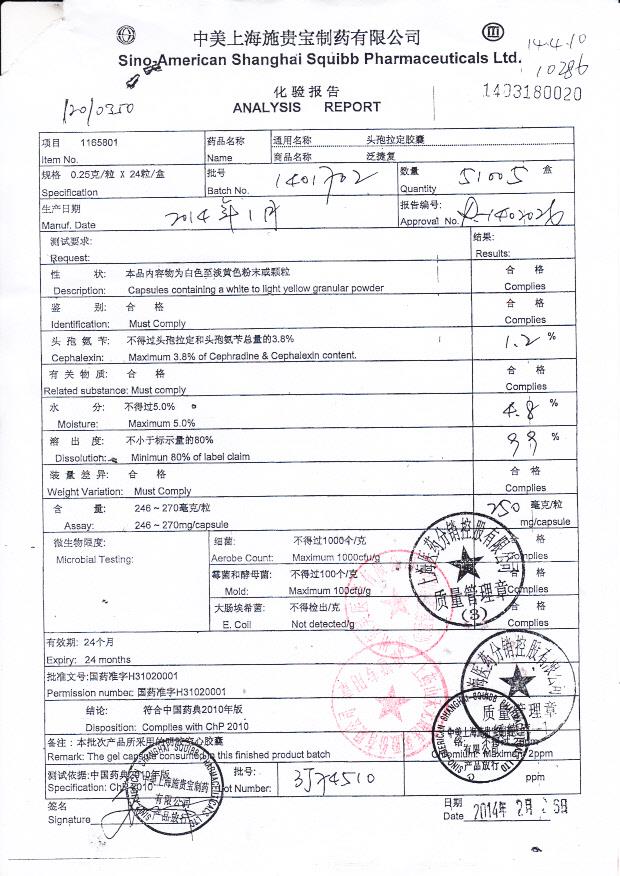 中美上海施贵宝制药有限公司
Sino-American Shanghai Squibb Pharmaceuticals Ltd.
14.4.10
10286
化验报告
ANALYSIS REPORT
1403180020
120/0350
项目 1165801 药品名称 通用名称 头孢拉定胶囊
Item No. Name 商品名称 泛捷复
规格 0.25克/粒 X 24粒/盒 批号 1401702 数量 51005 盒
Specification Batch No. Quantity
生产日期 2014年1月 报告编号:
Manuf. Date Approval No.
测试要求: 结果:
Request: Results:
性 状: 本品内容物为白色至淡黄色粉末或颗粒 合 格
Description: Capsules containing a white to light yellow granular powder Complies
鉴 别: 合 格 合 格
Identification: Must Comply Complies
头孢氨苄: 不得过头孢拉定和头孢氨苄总量的3.8% 1.2 %
Cephalexin: Maximum 3.8% of Cephradine & Cephalexin content.
有关物质: 合 格 合 格
Related substance: Must comply Complies
水 分: 不得过5.0% 4.8 %
Moisture: Maximum 5.0%
溶出度: 不小于标示量的80% 99 %
Dissolution: Minimun 80% of label claim
装量差异: 合 格 合 格
Weight Variation: Must Comply Complies
含 量: 246～270毫克/粒 250 毫克/粒
Assay: 246～270mg/capsule mg/capsule
微生物限度: 细菌: 不得过1000个/克 合格
Microbial Testing: Aerobe Count: Maximum 1000cfu/g Complies
霉菌和酵母菌: 不得过100个/克 合 格
Mold: Maximum 100cfu/g Complies
大肠埃希菌: 不得检出/克 合 格
E. Coli Not detected/g Complies
上海医药分销控股有限公司
质量管理章
(3)
有效期: 24个月
Expiry: 24 months
批准文号:国药准字H31020001
Permission number: 国药准字H31020001
上海医药分销控股有限公司
质量管理章
结论: 符合中国药典2010年版
Disposition: Complies with ChP 2010
备注：本批次产品所采用的
Remark: The gel capsule consumed in this finished product batch Chromium: Maximum 2ppm
中美上海施贵宝制药
有限公司
产品放行
测试依据:中国药典2010年版 批号: 3J74510 ppm
Specification: ChP 2010 Lot Number:
中美上海施贵宝制药
有限公司
产品放行
签名 日期
Signature Date 2014年 2月 26日